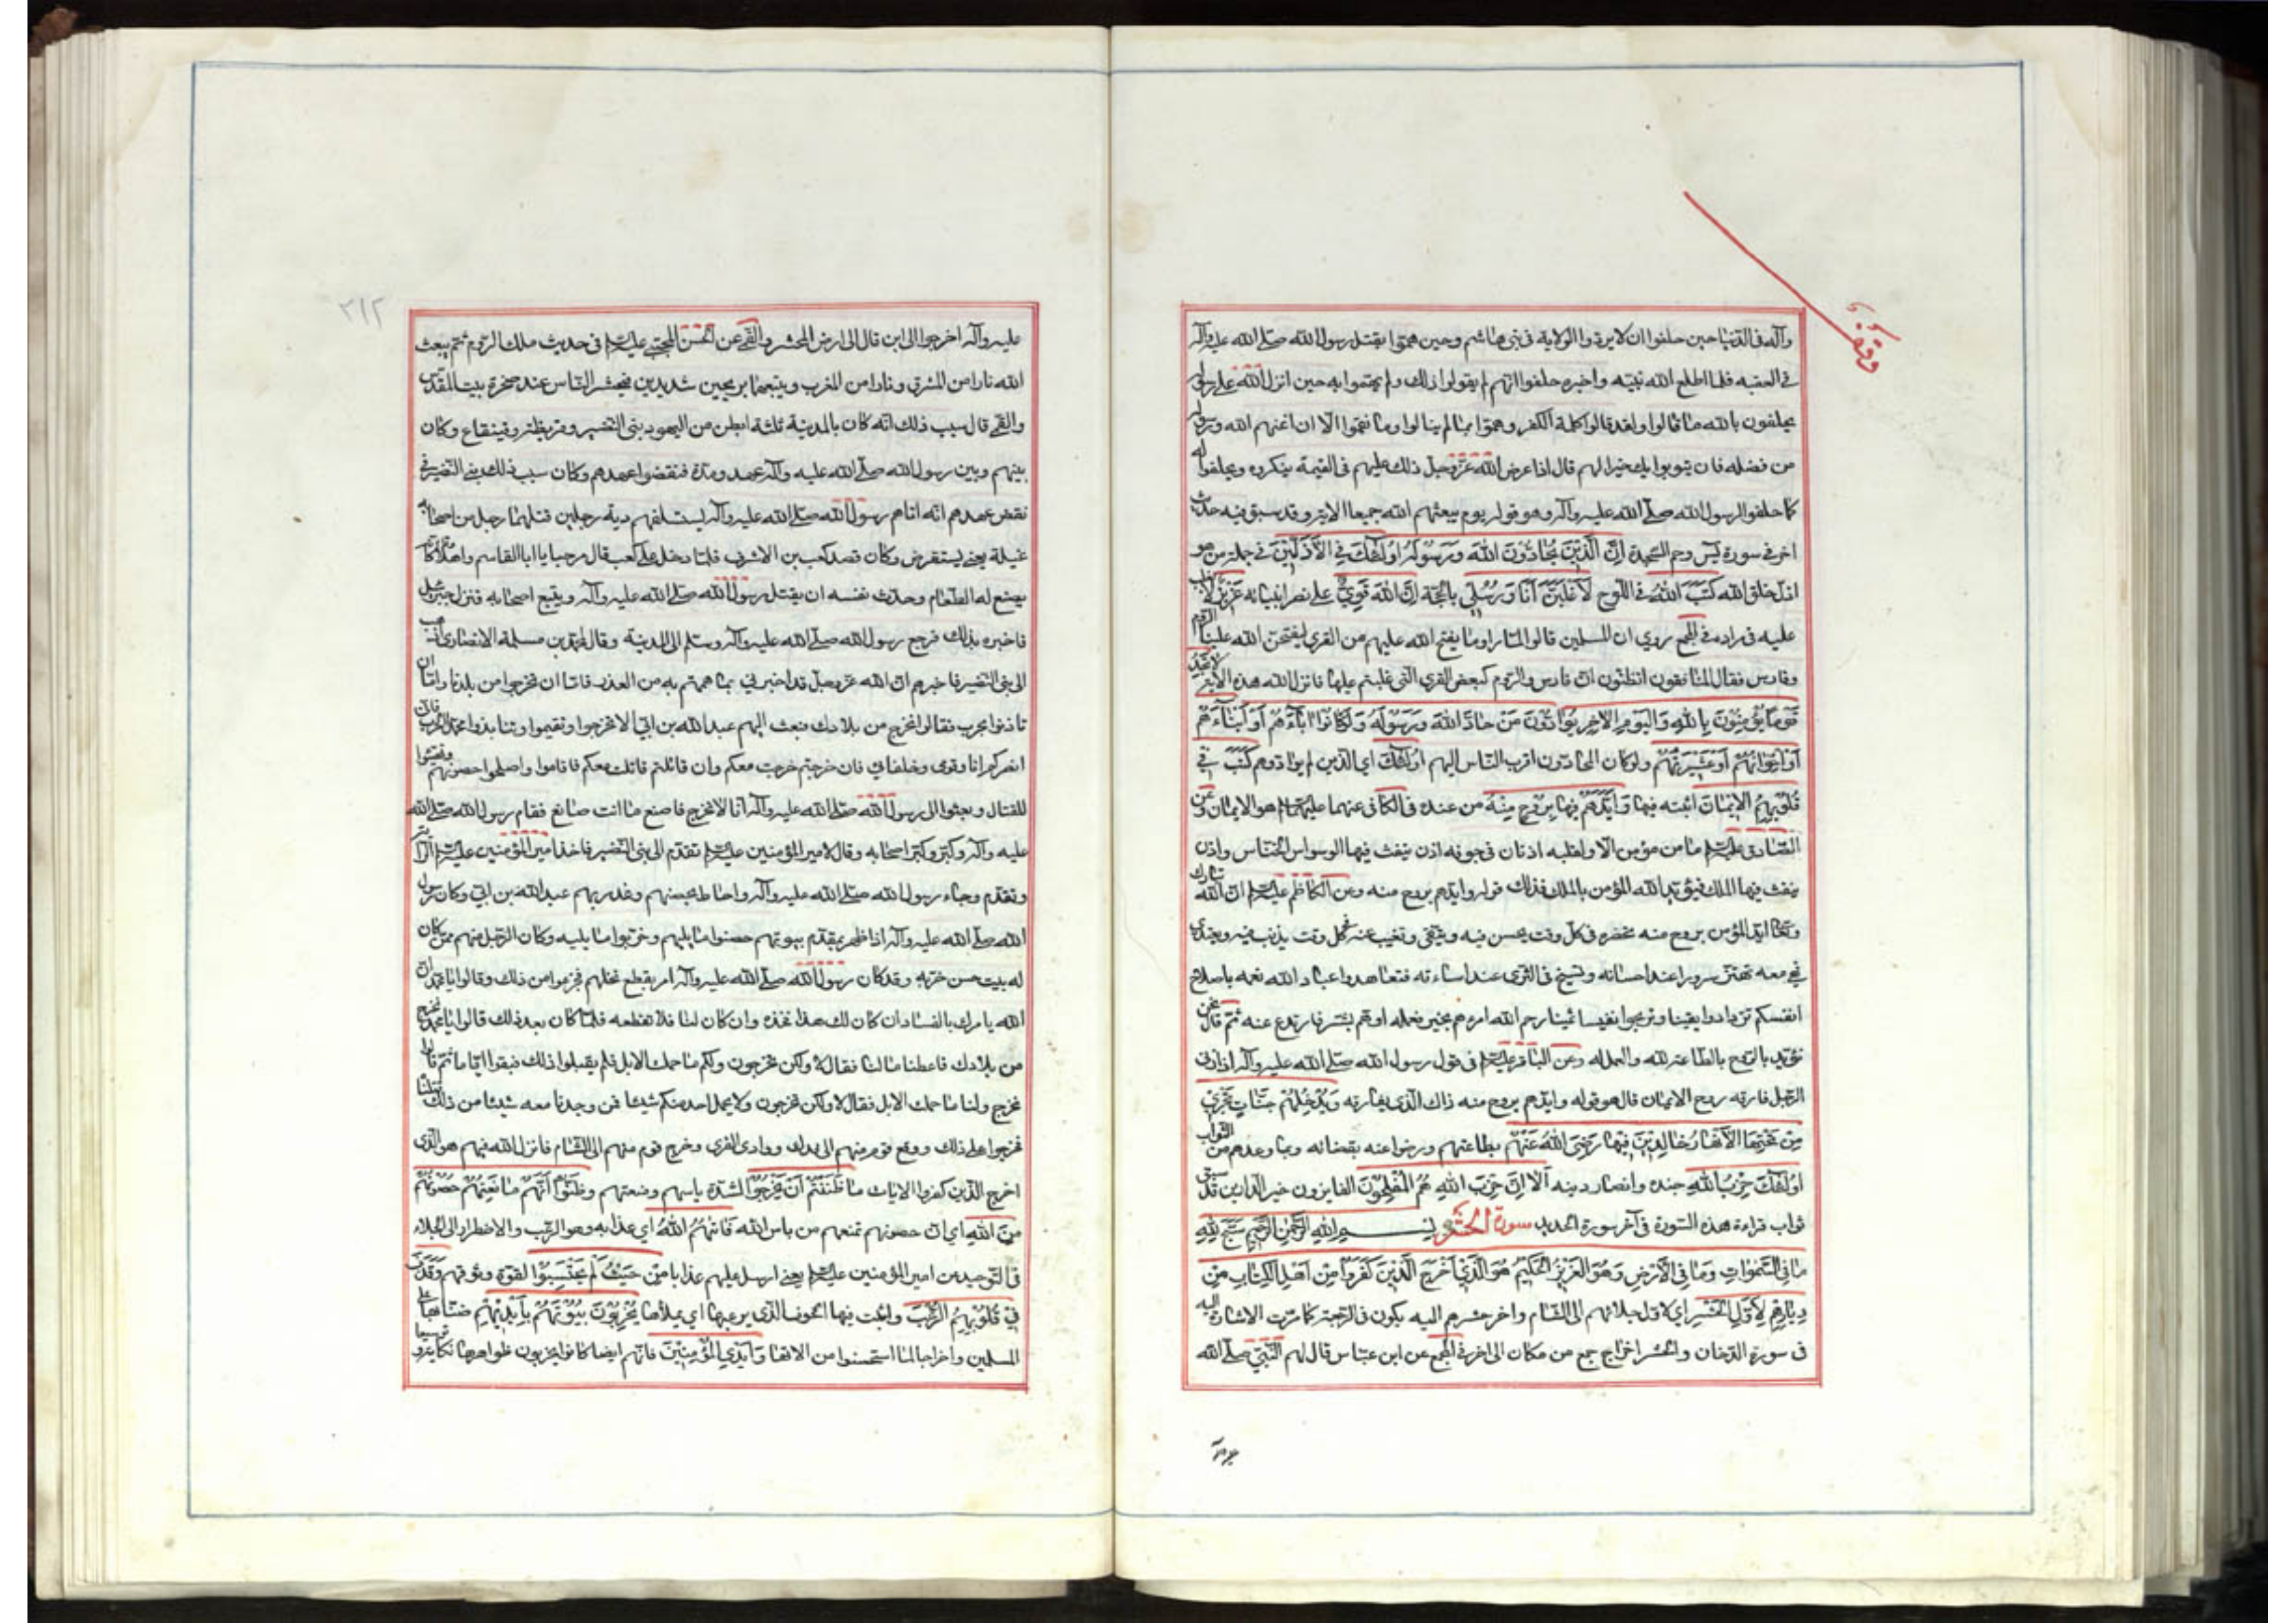 وقف
وآله في الدنيا حين حلفوا ان لا يردوا الولاية في بني هاشم وحين هموا بقتل رسول الله صلى الله عليه وآله
في العقبه فلما اطلع الله نبيه واخبره حلفوا انهم لم يقولوا ذلك ولم يهتموا به حين انزل الله على رسوله
يحلفون بالله ما قالوا ولقد قالوا كلمة الكفر وهموا بما لم ينالوا وما نقموا الا ان اغنهم الله ورسوله
من فضله فان يتوبوا يك خيرا لهم قال اذا عرض الله عز وجل ذلك عليهم في القيمة ينكروه ويحلفوا له
كما حلفوا لرسول الله صلى الله عليه وآله وهو قوله يوم يبعثهم الله جميعا الاية وقد سبق فيه حديث
اخر في سورة يس وحم السجدة اِنَّ الَّذِينَ يُحَادُّونَ اللهَ وَرَسُولَهُ اُولٰئِكَ فِي الْاَذَلِّينَ في جملة من هو
اذل خلق الله كَتَبَ اللهُ في اللوح لَاَغْلِبَنَّ اَنَا وَرُسُلِي بالحجة اِنَّ اللهَ قَوِيٌّ على نصر انبيائه عَزِيزٌ لا يغلب
عليه في مراده في المجمع روي ان المسلمين قالوا لما راوا ما يفتح الله عليهم من القرى ليفتحن الله علينا الروم
وفارس فقال المنافقون اتظنون ان فارس والروم كبعض القرى التي غلبتم عليها فانزل الله هذه الاية لا تَجِدُ
قَوْمًا يُؤْمِنُونَ بِاللهِ وَالْيَوْمِ الْاٰخِرِ يُوَادُّونَ مَنْ حَادَّ اللهَ وَرَسُولَهُ وَلَوْ كَانُوا اٰبَاءَهُمْ اَوْ اَبْنَاءَهُمْ
اَوْ اِخْوَانَهُمْ اَوْ عَشِيرَتَهُمْ ولو كان المحادون اقرب الناس اليهم اُولٰئِكَ اي الذين لم يوادوهم كَتَبَ فِي
قُلُوبِهِمُ الْاِيمَانَ اثبته فيها وَاَيَّدَهُمْ فيها بِرُوحٍ مِنْهُ من عنده في الكافي عنهما عليهما السلام هو الايمان وعن
الصادق عليه السلام ما من مؤمن الا ولقلبه اذنان في جوفه اذن ينفث فيها الوسواس الخناس واذن
ينفث فيها الملك فيؤيد الله المؤمن بالملك فذلك قوله وايدهم بروح منه وعن الكاظم عليه السلام ان الله تبارك
وتعالى ايد المؤمن بروح منه تحضره في كل وقت يحسن فيه ويتقي وتغيب عنه في كل وقت يذنب فيه ويعتدي
فهي معه تهتز سرورا عند احسانه وتسيخ في الثرى عند اساءته فتعاهدوا عباد الله نعمه باصلاح
انفسكم تزدادوا يقينا وتربحوا نفيسا ثمينا رحم الله امرء هم بخير فعمله او هم بشر فارتدع عنه ثم قال نحن
نؤيد بالروح بالطاعة لله والعمل له وعن الباقر عليه السلام في قول رسول الله صلى الله عليه وآله اذا زنى
الرجل فارقه روح الايمان قال هو قوله وايدهم بروح منه ذاك الذي يفارقه وَيُدْخِلُهُمْ جَنَّاتٍ تَجْرِي
مِنْ تَحْتِهَا الْاَنْهَارُ خَالِدِينَ فِيهَا رَضِيَ اللهُ عَنْهُمْ بطاعتهم ورضوا عنه بقضائه وبما وعدهم من الثواب
اُولٰئِكَ حِزْبُ اللهِ جنده وانصار دينه اَلَا اِنَّ حِزْبَ اللهِ هُمُ الْمُفْلِحُونَ الفايزون خير الدارين قد سبق
ثواب قراءة هذه السورة في آخر سورة الحديد سورة الحشر بسم الله الرحمن الرحيم سَبَّحَ لِلّٰهِ
مَا فِي السَّمٰوَاتِ وَمَا فِي الْاَرْضِ وَهُوَ الْعَزِيزُ الْحَكِيمُ هُوَ الَّذِي اَخْرَجَ الَّذِينَ كَفَرُوا مِنْ اَهْلِ الْكِتَابِ مِنْ
دِيَارِهِمْ لِاَوَّلِ الْحَشْرِ اي لاول جلائهم الى الشام واخر حشرهم اليه يكون في الرجعة كما مرت الاشارة اليه
في سورة الدخان والحشر اخراج جمع من مكان الى اخر في المجمع عن ابن عباس قال لهم النبي صلى الله
عليه وآله
٢١٢
عليه وآله اخرجوا الى اين قال الى ارض المحشر والقمي عن الحسن المجتبى عليه السلام في حديث ملك الروم ثم يبعث
الله نارا من المشرق ونارا من المغرب ويتبعهما بريحين شديدين فيحشر الناس عند صخرة بيت المقدس
والقمي قال سبب ذلك انه كان بالمدينة ثلثة ابطن من اليهود بني النضير وقريظة وقينقاع وكان
بينهم وبين رسول الله صلى الله عليه وآله عهد ومدة فنقضوا عهدهم وكان سبب ذلك بني النضير في
نقض عهدهم انه اتاهم رسول الله صلى الله عليه وآله يستسلفهم دية رجلين قتلهما رجل من اصحابه
غيلة يعني يستقرض وكان قصد كعب بن الاشرف فلما دخل على كعب قال مرحبا يا ابا القاسم واهلا وقام كانه
يصنع له الطعام وحدث نفسه ان يقتل رسول الله صلى الله عليه وآله ويتبع اصحابه فنزل جبرئيل
فاخبره بذلك فرجع رسول الله صلى الله عليه وآله وسلم الى المدينة وقال لمحمد بن مسلمة الانصاري اذهب
الى بني النضير فاخبرهم ان الله عز وجل قد اخبرني بما هممتم به من الغدر فاما ان تخرجوا من بلدنا واما ان
تاذنوا بحرب فقالوا نخرج من بلادك فبعث اليهم عبد الله بن ابي الا تخرجوا وتقيموا وتنابذوا محمدا الحرب فاني
انصركم انا وقومي وحلفائي فان خرجتم خرجت معكم وان قاتلتم قاتلت معكم فاقاموا واصلحوا حصونهم وتهيئوا
للقتال وبعثوا الى رسول الله صلى الله عليه وآله انا لا نخرج فاصنع ما انت صانع فقام رسول الله صلى الله
عليه وآله وكبر وكبر اصحابه وقال لامير المؤمنين عليه السلام تقدم الى بني النضير فاخذ امير المؤمنين عليه السلام الراية
وتقدم وجاء رسول الله صلى الله عليه وآله واحاط بحصنهم وغدر بهم عبد الله بن ابي وكان رسول
الله صلى الله عليه وآله اذا ظهر بمقدم بيوتهم حصنوا ما يليهم وخربوا ما يليه وكان الرجل منهم ممن كان
له بيت حسن خربه وقد كان رسول الله صلى الله عليه وآله امر بقطع نخلهم فجزعوا من ذلك وقالوا يا محمد ان
الله يامرك بالفساد ان كان لك هذا فخذه وان كان لنا فلا تقطعه فلما كان بعد ذلك قالوا يا محمد نخرج
من بلادك فاعطنا مالنا فقال لا ولكن تخرجون ولكم ما حملت الابل فلم يقبلوا ذلك فبقوا اياما ثم قالوا
نخرج ولنا ما حملت الابل فقال لا ولكن تخرجون ولا يحمل احد منكم شيئا فمن وجدنا معه شيئا من ذلك قتلناه
فخرجوا على ذلك ووقع قوم منهم الى فدك ووادي القرى وخرج قوم منهم الى الشام فانزل الله فيهم هو الذي
اخرج الذين كفروا الايات مَا ظَنَنْتُمْ اَنْ يَخْرُجُوا لشدة باسهم ومنعتهم وَظَنُّوا اَنَّهُمْ مَانِعَتُهُمْ حُصُونُهُمْ
مِنَ اللهِ اي ان حصونهم تمنعهم من باس الله فَاَتٰهُمُ اللهُ اي عذابه وهو الرعب والاضطرار الى الجلاء
في التوحيد عن امير المؤمنين عليه السلام يعني ارسل عليهم عذابا مِنْ حَيْثُ لَمْ يَحْتَسِبُوا لقوة وثوقهم وَقَذَفَ
فِي قُلُوبِهِمُ الرُّعْبَ واثبت فيها الخوف الذي يرعبها اي يملأها يُخْرِبُونَ بُيُوتَهُمْ بِاَيْدِيهِمْ ضنا بها على
المسلمين واخراجا لما استحسنوا من الاتها وَاَيْدِي الْمُؤْمِنِينَ فانهم ايضا كانوا يخربون ظواهرها نكاية وتوسيعا